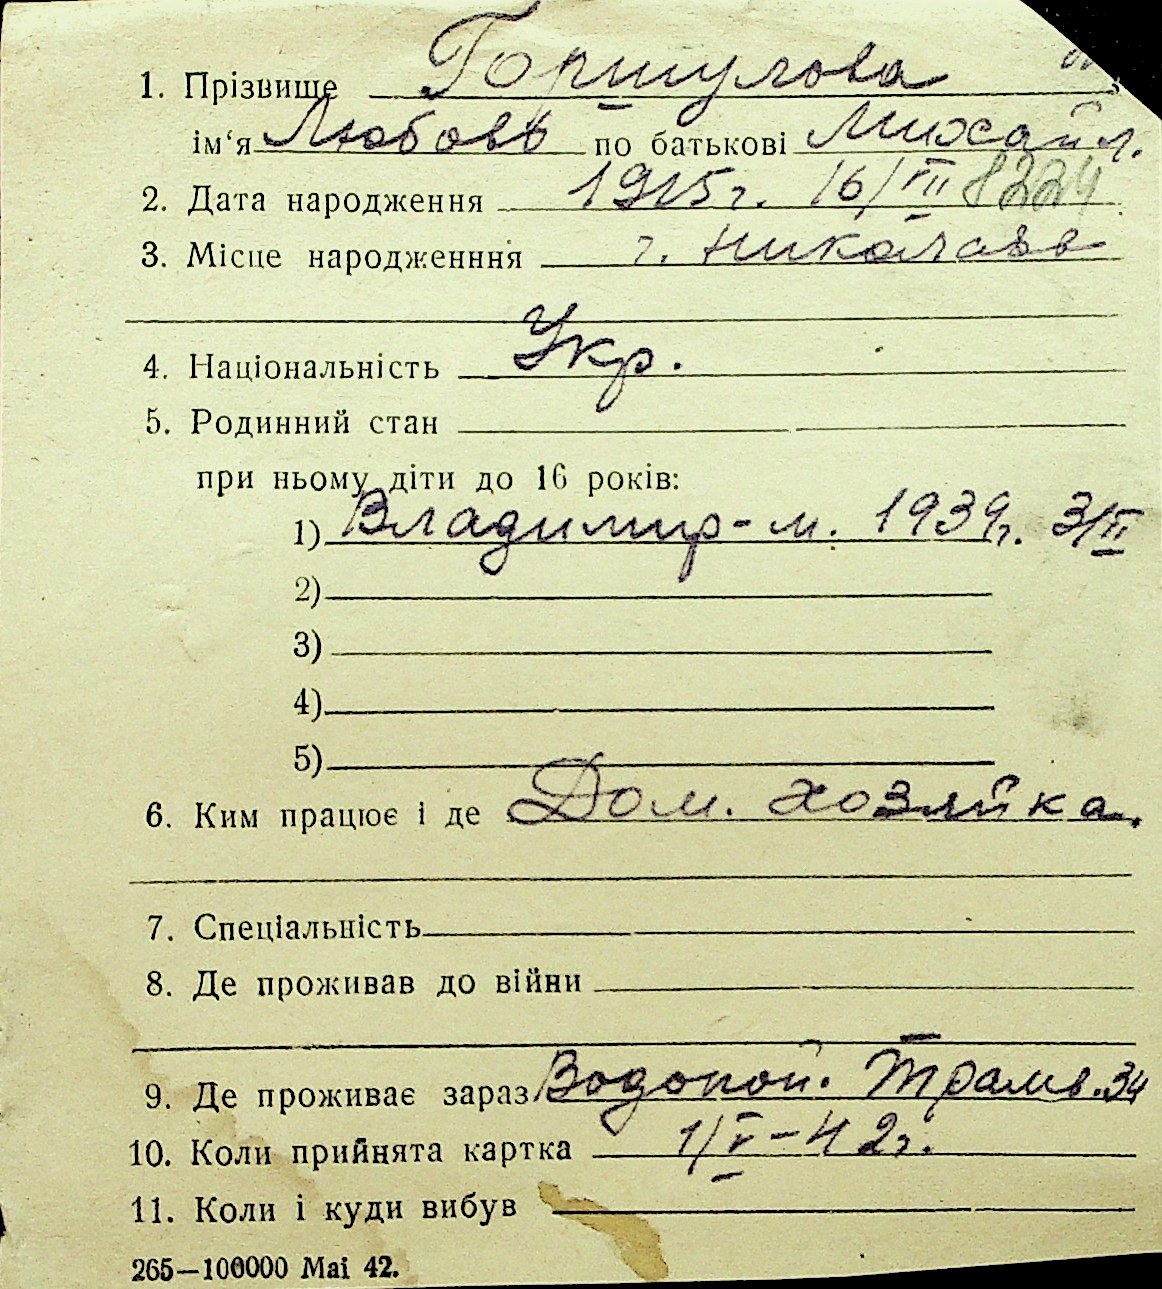 1. Прізвище Горшулова
ім‘я Любовь по батькові Михайл.
2. Дата народження 1915г. 16/VII 8224
3. Місце народженння г. Николаев
4. Національність Укр.
5. Родинний стан
при ньому діти до 16 років:
1) Владимир - м. 1939г. 3/II
2)
3)
4)
5)
6. Ким працює і де Дом. хозяйка.
7. Спеціальність
8. Де проживав до війни
9. Де проживає зараз Водопой. Трамв. 34
10. Коли прийнята картка 1/V-42г.
11. Коли і куди вибув
265—100000 Mai 42.